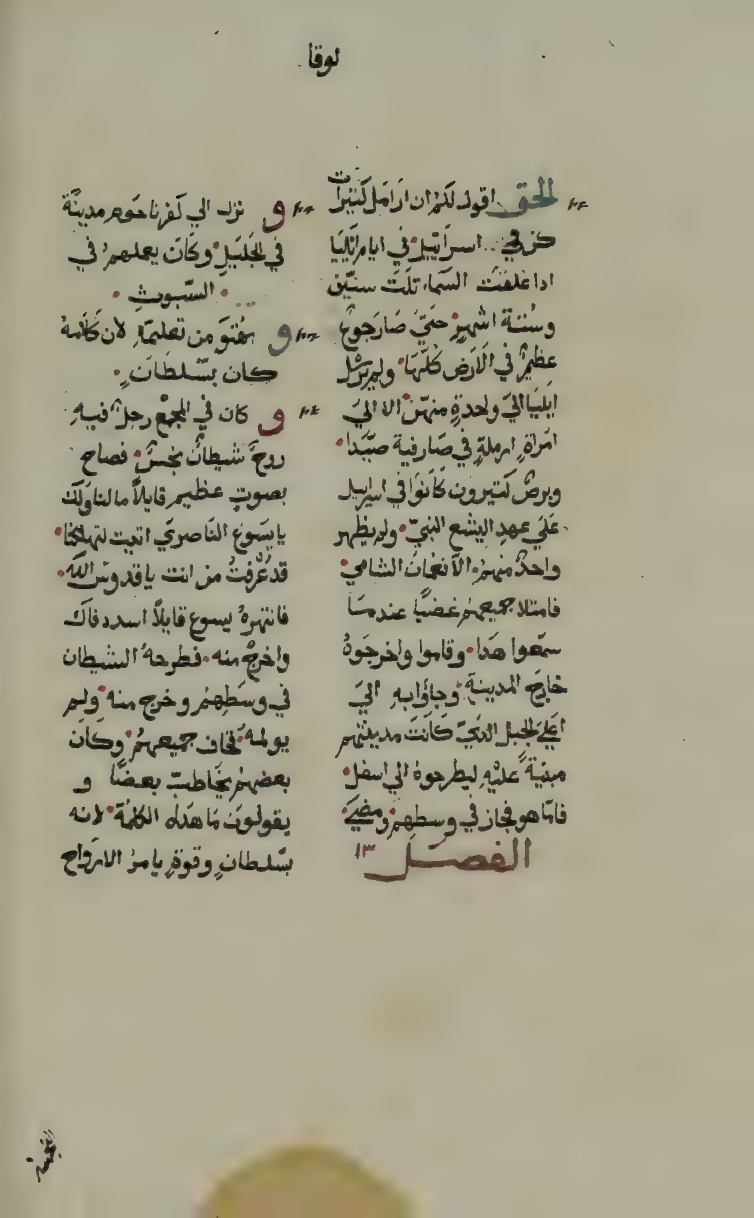 لوقا
الحق اقول لكم ان ارامل كثيرات
كن في اسرائيل في ايام ايليا
اذا غلقت السماء تلت سنين
وستة اشهر حتي صار جوع
عظيم في الارض كلها ولم يرسل
ايليا الي واحدة منهن الا الي
امراة ارملة في صارفية صيدا
وبرص كتيرون كانوا في اسراييل
علي عهد اليشع النبي ولم يظهر
واحد منهم الا نعمان الشامي
فامتلا جميعهم غضبا عندما
سمعوا هدا وقاموا واخرجوه
خارج المدينة وجاوا به الي
اعلي الجبل الدي كانت مدينتهم
مبنية عليه ليطرحوه الي اسفل
فاما هو فجاز في وسطهم ومضي
الفصل ١٣
و نزل الي كفرناحوم مدينة
في الجليل وكان يعلمهم في
السبوت
و بهتو من تعليمه لان كلامه
كان بسلطان
و كان في المجمع رجل فيه
روح شيطان نجس فصاح
بصوت عظيم قايلا ما لنا ولك
يا يسوع الناصري اتيت لتهلكنا
قد عرفت من انت يا قدوس الله
فانتهره يسوع قايلا اسدد فاك
واخرج منه فطرحه الشيطان
في وسطهم وخرج منه ولم
يولمه فخاف جميعهم وكان
بعضهم يخاطب بعضا و
يقولون ما هده الكلمة لانه
بسلطان وقوة يامر الارواح
النجسة